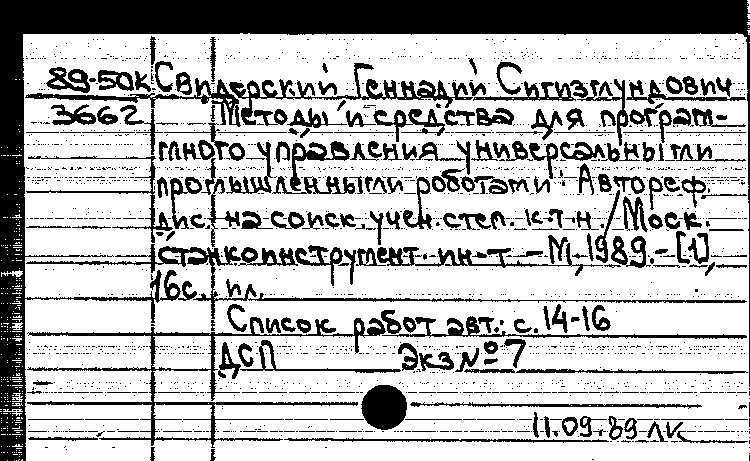 89-50К Свидерский Геннадий Сигизмундович
3662 Методы и средства для програм-
много управления универсальными
промышленными роботами: Автореф.
дис. на соиск. учен. степ. к.т.н. / Моск.
станкоинструмент. ин-т. - М., 1989. - [1],
16с. ил.
Список работ авт.: с. 14-16
ДСП Экз № 7
11.09.89 ЛК